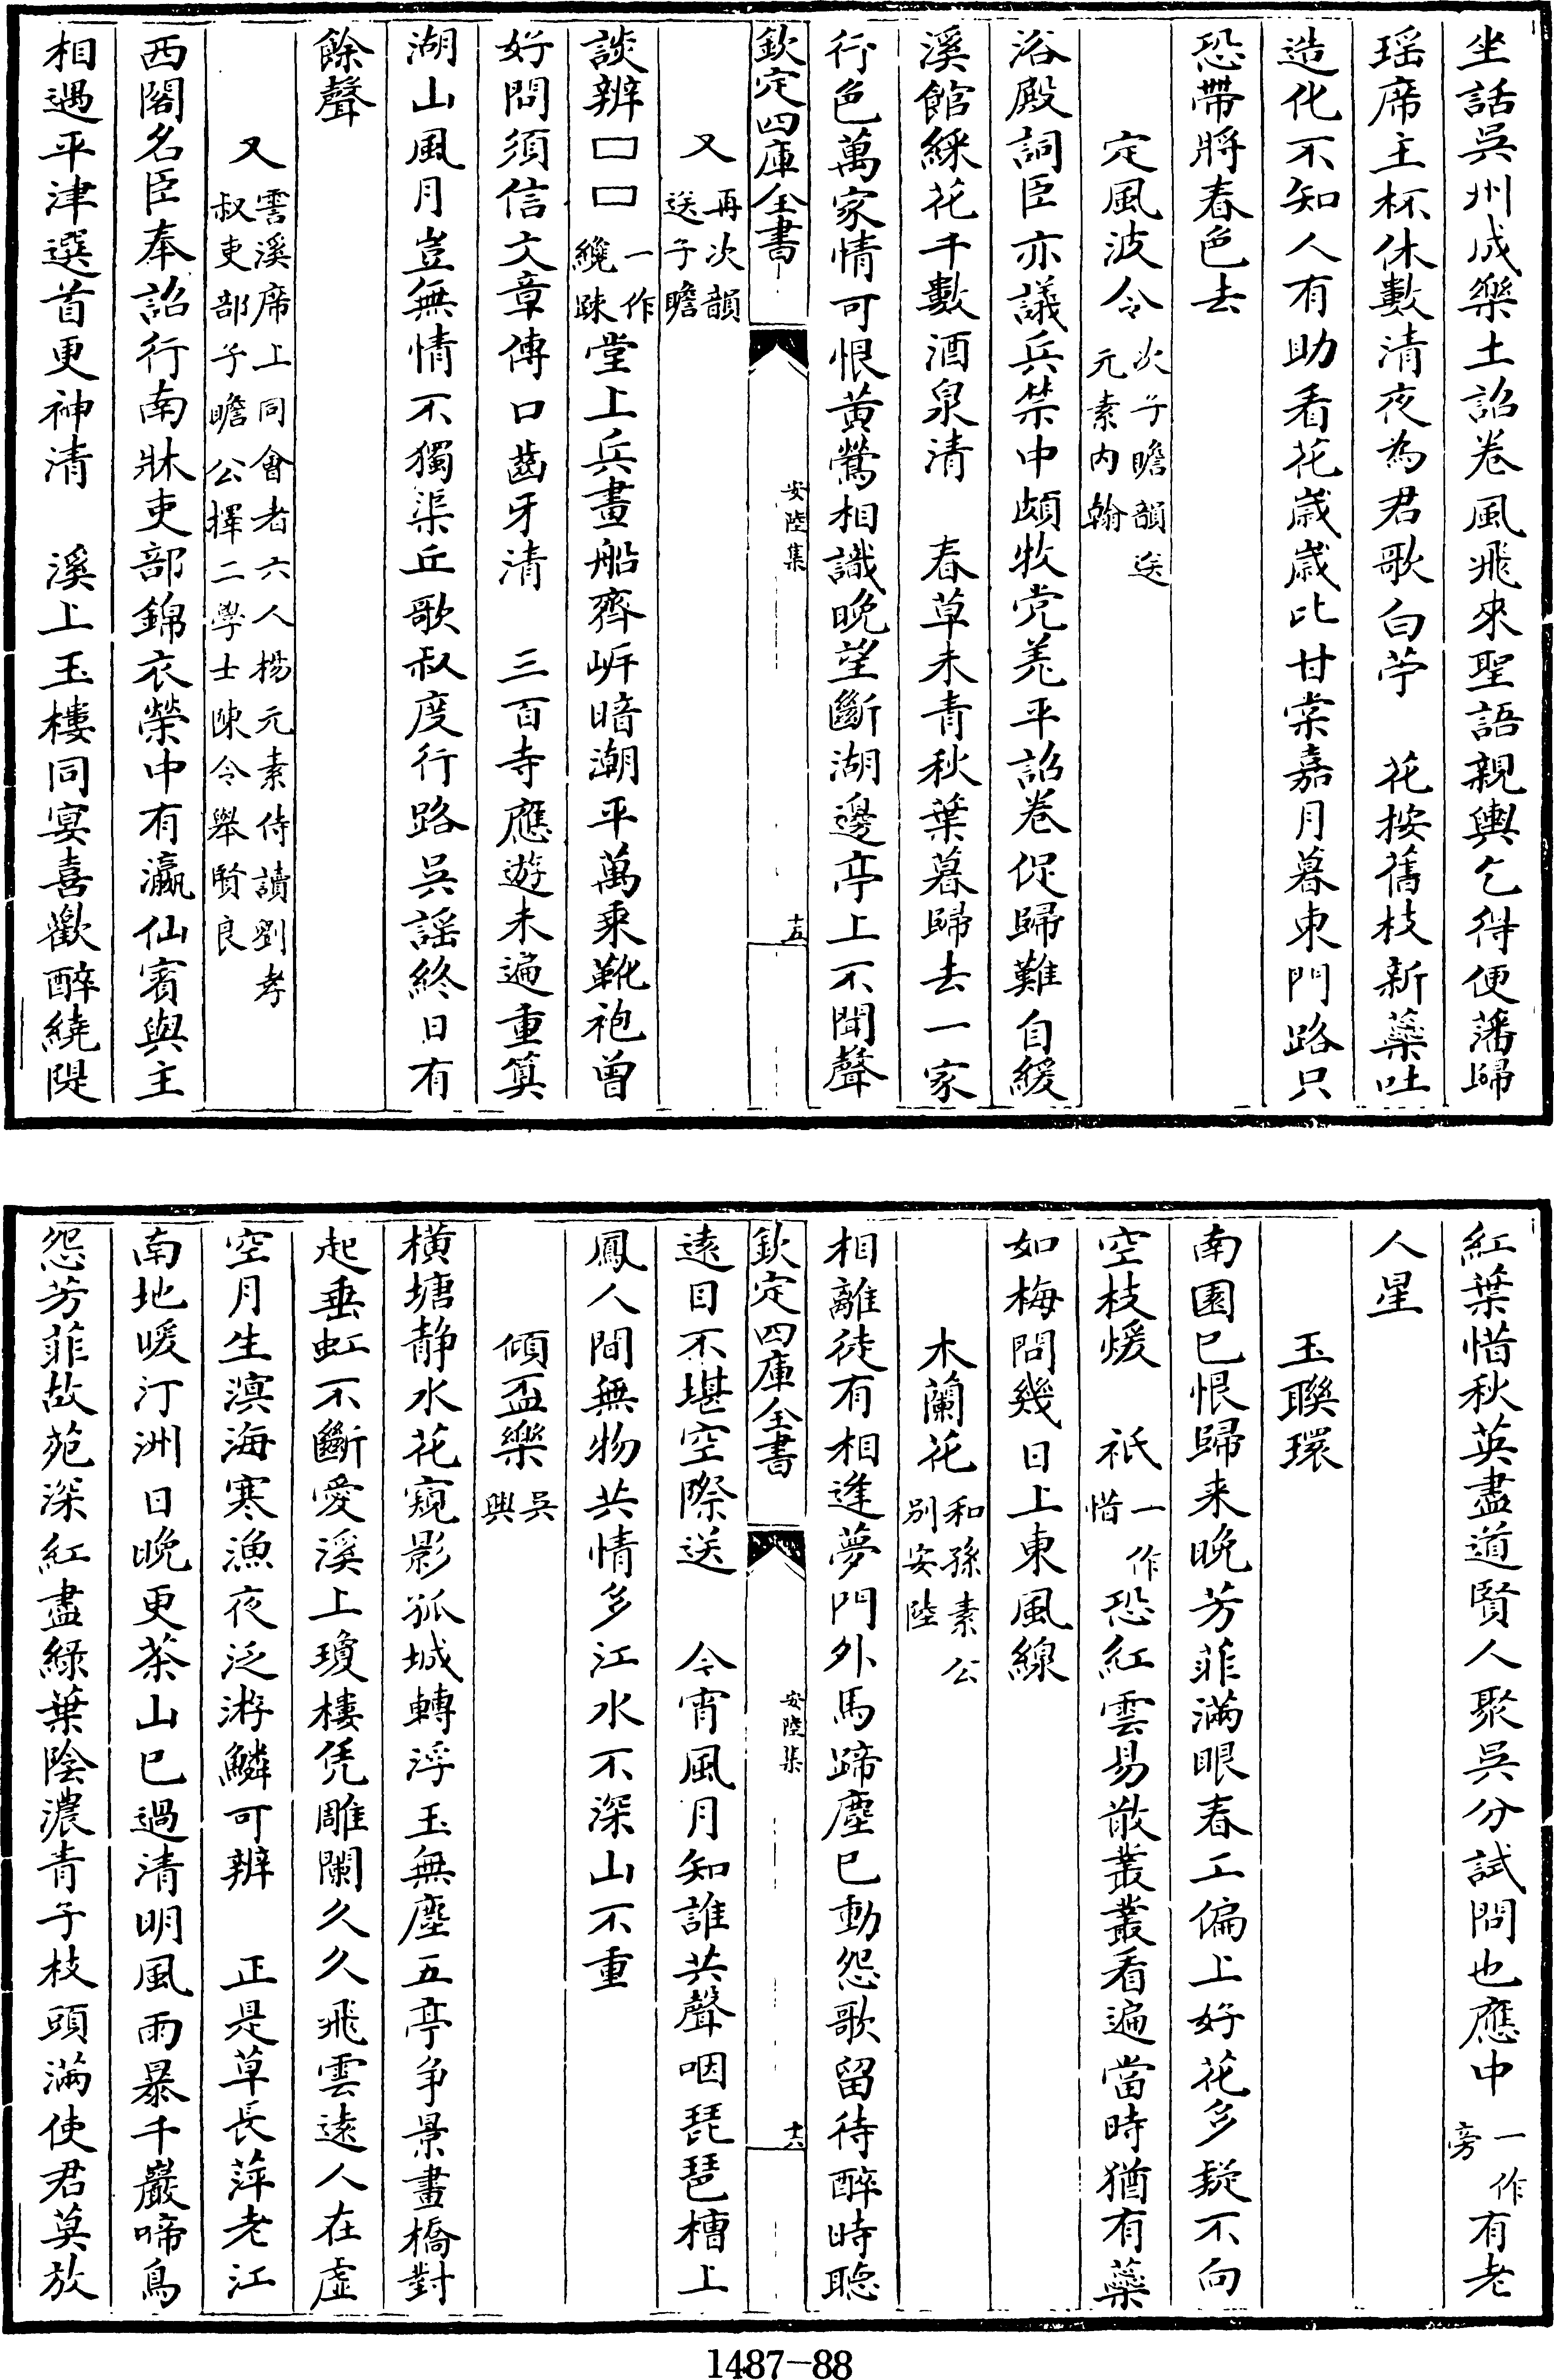 坐話吳州成樂土詔卷風飛來聖語親輿乞得便藩歸
瑶席主杯休數清夜為君歌白苧　花按舊枝新蘂吐
造化不知人有助看花歲歲比甘棠嘉月暮東門路只
恐帶將春色去
定風波令次子瞻韻送元素内翰
浴殿詞臣亦議兵禁中頗牧党羌平詔卷促歸難自緩
溪館綵花千數酒泉清　春草未青秋葉暮歸去一家
行色萬家情可恨黄鶯相識晚望斷湖邊亭上不聞聲
欽定四庫全書　安陸集　十五
又再次韻送子瞻
談辨口口一作纔踈堂上兵畫船齊岍暗潮平萬乘靴袍曾
好問須信文章傳口齒牙清　三百寺應遊未遍重筭
湖山風月豈無情不獨渠丘歌叔度行路吳謡終日有
餘聲
又霅溪席上同會者六人楊元素侍讀劉孝叔吏部子瞻公擇二學士陳令舉賢良
西閣名臣奉詔行南牀吏部錦衣榮中有瀛仙賓與主
相遇平津選首更神清　溪上玉樓同宴喜歡醉繞隄
紅葉惜秋英盡道賢人聚吳分試問也應中一作旁有老
人星
玉聯環
南園已恨歸来晚芳菲滿眼春工偏上好花多疑不向
空枝煖　祇一作惜恐紅雲易散叢叢看遍當時猶有蘂
如梅問幾日上東風線
木蘭花和孫素公别安陸
相離徒有相逢夢門外馬蹄塵已動怨歌留待醉時聽
欽定四庫全書　安陸集　十六
遠目不堪空際送　今宵風月知誰共聲咽琵琶槽上
鳳人間無物共情多江水不深山不重
傾盃樂吳興
横塘静水花窺影孤城轉浮玉無塵五亭争景畫橋對
起垂虹不斷愛溪上瓊樓凭雕闌久久飛雲遠人在虛
空月生溟海寒漁夜泛游鱗可辨　正是草長萍老江
南地暖汀洲日晚更茶山已過清明風雨暴千巖啼鳥
怨芳菲故苑深紅盡緑葉陰濃青子枝頭滿使君莫放
1487—88